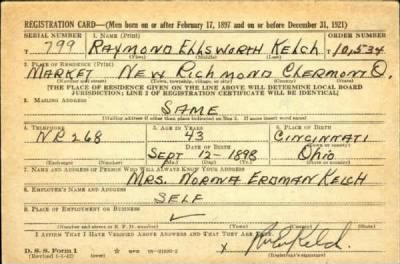 REGISTRATION CARD—(Men born on or after February 17, 1897 and on or before December 31, 1921)
SERIAL NUMBER 1. NAME (Print) ORDER NUMBER
799 RAYMOND ELLSWORTH KELCH 10,534
(First) (Middle) (Last)
2. PLACE OF RESIDENCE (Print)
MARKET NEW RICHMOND CLERMONT O.
(Number and street) (Town, township, village, or city) (County) (State)
[THE PLACE OF RESIDENCE GIVEN ON THE LINE ABOVE WILL DETERMINE LOCAL BOARD
JURISDICTION; LINE 2 OF REGISTRATION CERTIFICATE WILL BE IDENTICAL]
3. MAILING ADDRESS
SAME
[Mailing address if other than place indicated on line 2. If same insert word same]
4. TELEPHONE 5. AGE IN YEARS 6. PLACE OF BIRTH
NR 268 43 CINCINNATI
DATE OF BIRTH (Town or county)
SEPT 12- 1898 OHIO
(Exchange) (Number) (Mo.) (Day) (Yr.) (State or country)
7. NAME AND ADDRESS OF PERSON WHO WILL ALWAYS KNOW YOUR ADDRESS
MRS. NORMA ERDMAN KELCH
8. EMPLOYER'S NAME AND ADDRESS
SELF
9. PLACE OF EMPLOYMENT OR BUSINESS
(Number and street or R. F. D. number) (Town) (County) (State)
I AFFIRM THAT I HAVE VERIFIED ABOVE ANSWERS AND THAT THEY ARE TRUE.
D. S. S. Form 1
(Revised 1-1-42) (over)
x